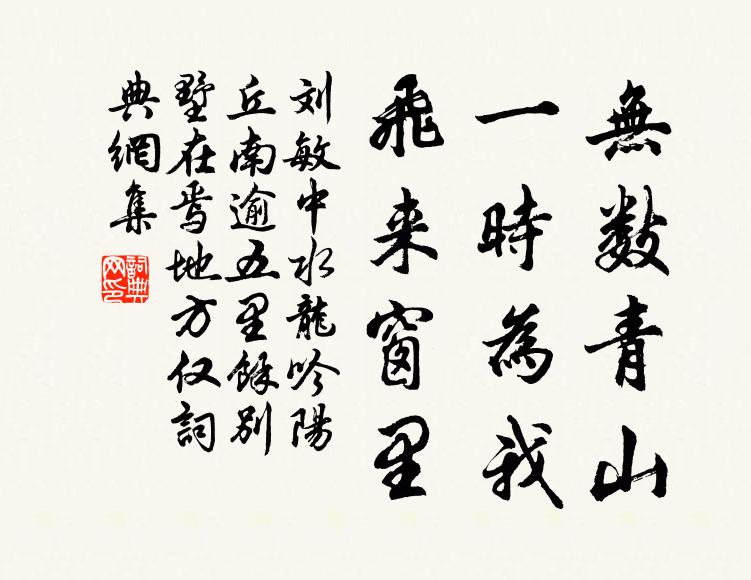 無數青山
一時為我
飛来窗里
刘敏中水龍吟陽
丘南逾五里餘别
墅在焉地方仅詞
典網集
詞典网印